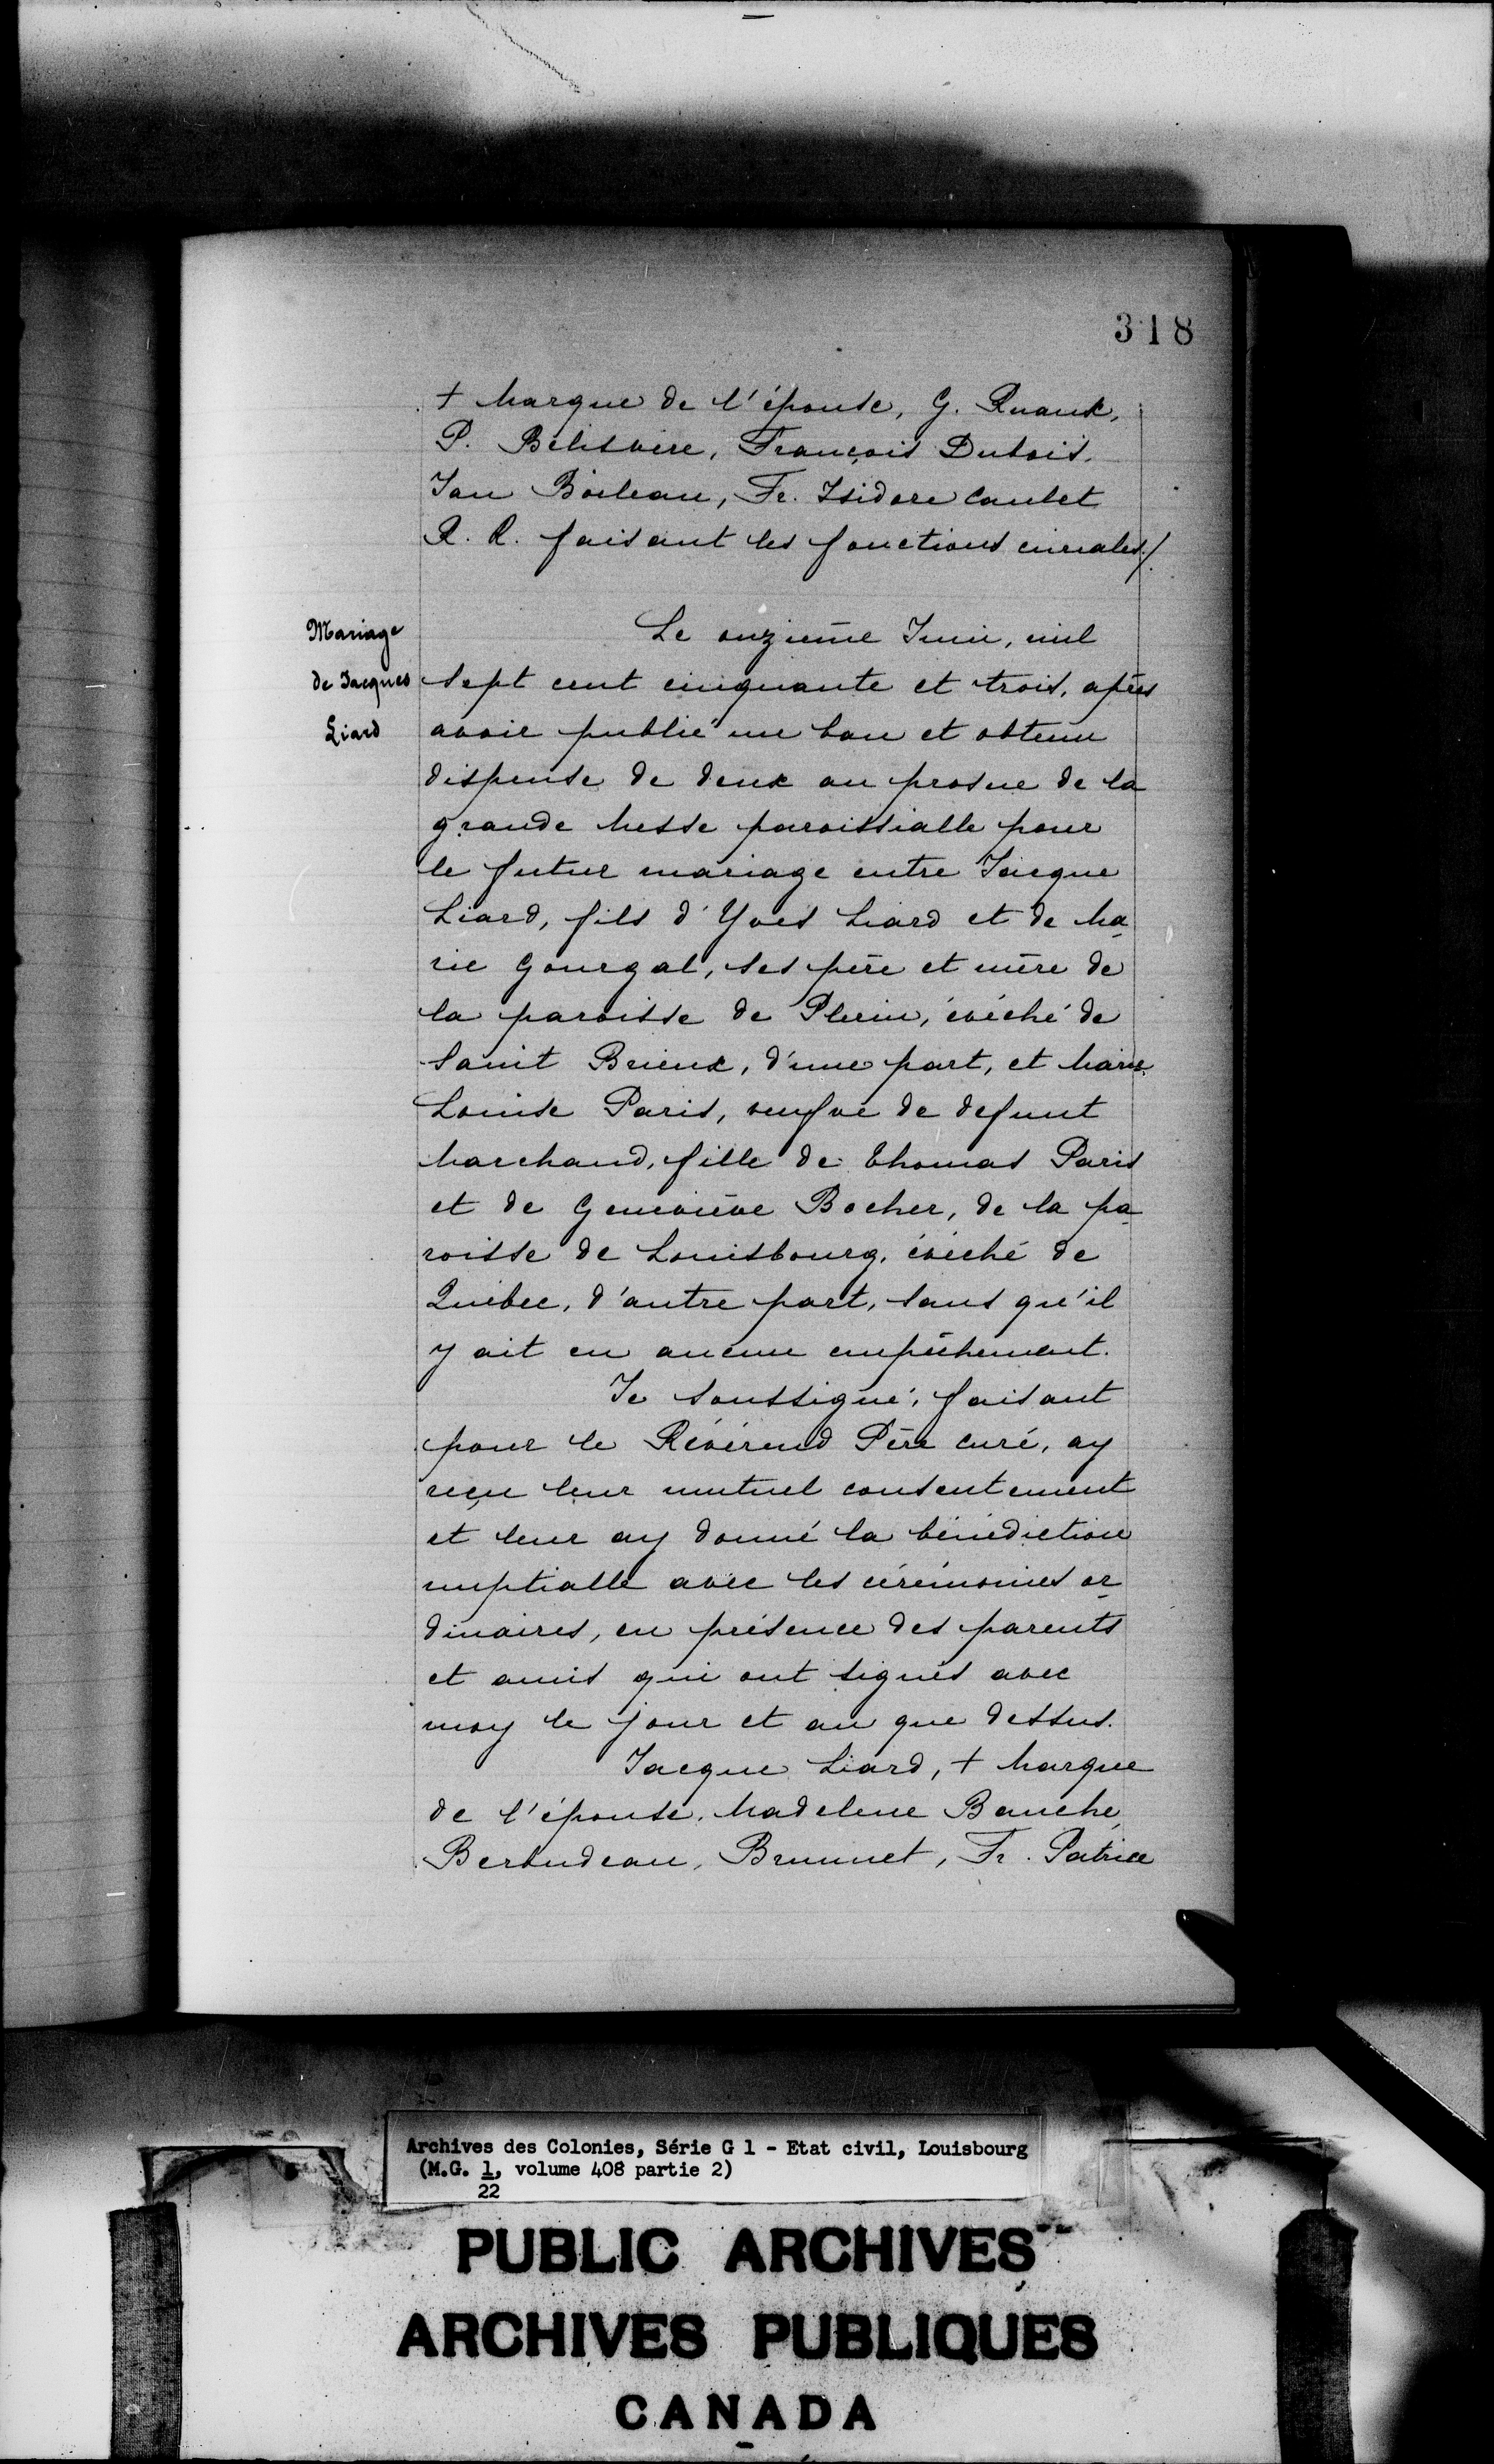 318
+ Marque de l'épouse, G. Ruaux,
P. Belisvère, François Dubois,
Jan Boileau, Fr. Isidore Caulet
R. R. faisant les fonctions curiales./.
Mariage
de Jacques
Liard
Le onzième Juin, mil
sept cent cinquante et trois, après
avoir publié un ban et obtenu
dispense de deux au prosne de la
grande Messe paroissialle pour
le futur mariage entre Jacque
Liard, fils d'Yves Liard et de Ma
rie Gourgal, ses père et mère de
la paroisse de Plerin, évêché de
Saint Brieux, d'une part, et Marie
Louise Paris, veufve de defunt
Marchand, fille de Thomas Paris
et de Geneviève Bocher, de la pa
roisse de Louisbourg, évêché de
Québec, d'autre part, sans qu'il
y ait eu aucun empêchement.
Je soussigné, faisant
pour le Révérend Père curé, ay
reçu leur mutuel consentement
et leur ay donné la bénédiction
nuptialle avec les cérémonies or
dinaires, en présence des parents
et amis qui ont signés avec
moy le jour et an que dessus.
Jacque Liard, + Marque
de l'épouse, Madelene Bauche,
Beraudeau, Brunnet, Fr. Patrice
Archives des Colonies, Série G 1 - Etat civil, Louisbourg
(M.G. 1, volume 408 partie 2)
22
PUBLIC ARCHIVES
ARCHIVES PUBLIQUES
CANADA